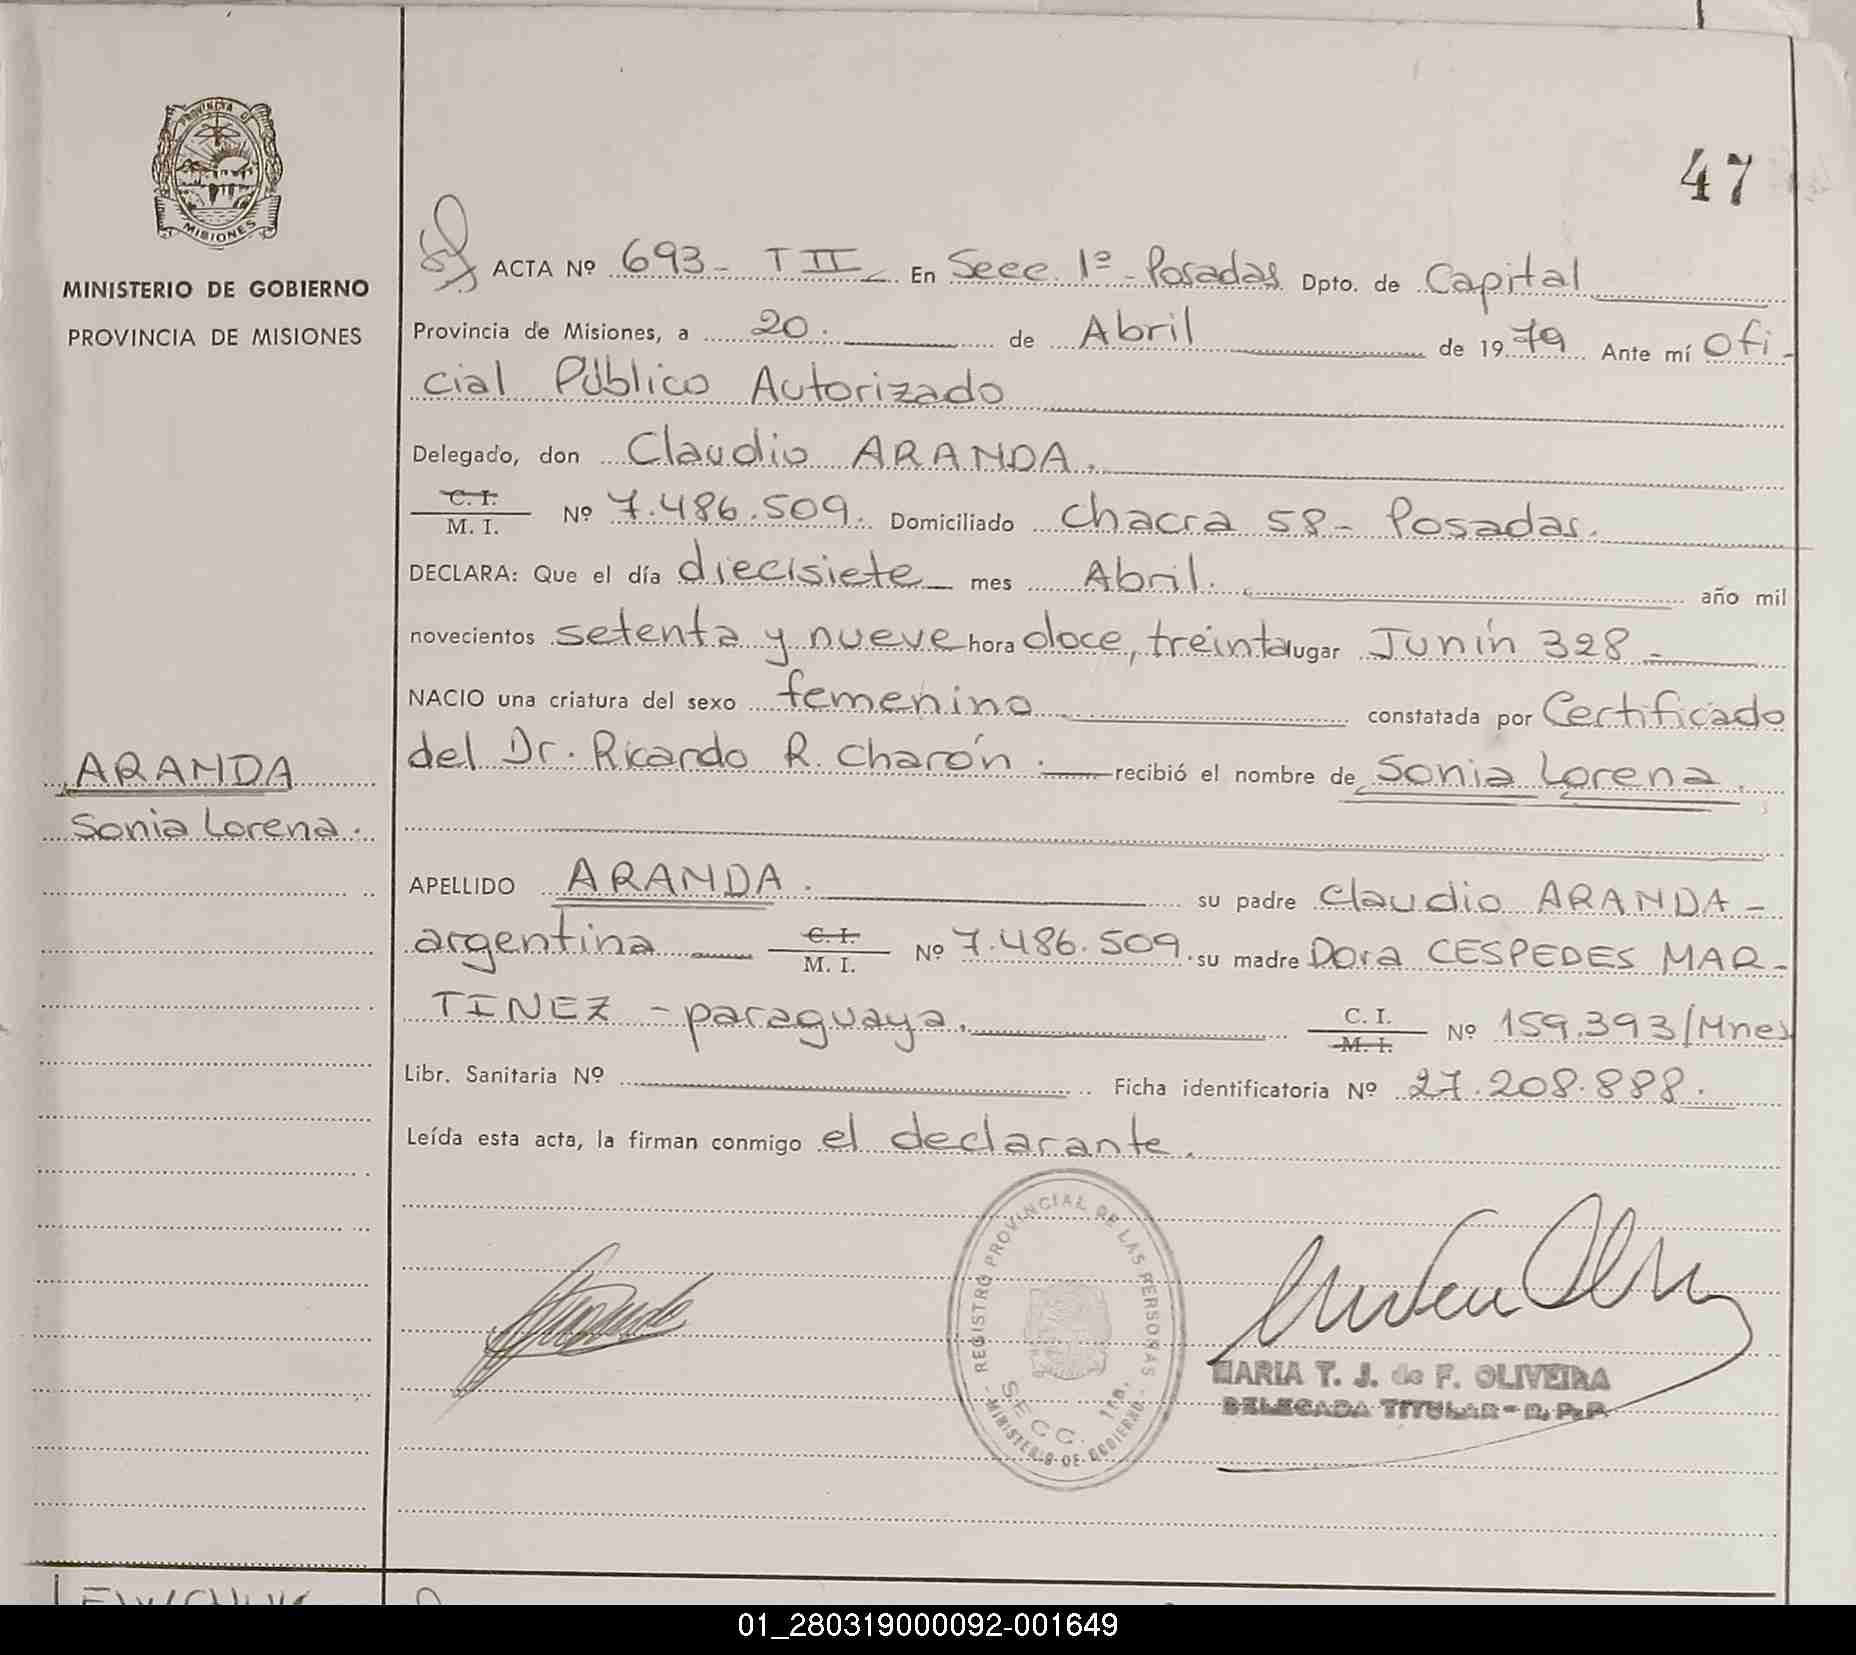 PROVINCIA DE
MISIONES
MINISTERIO DE GOBIERNO
PROVINCIA DE MISIONES
ARANDA
Sonia Lorena.
47
ACTA Nº 693- T II En Secc. 1ª - Posadas Dpto. de Capital
Provincia de Misiones, a 20. de Abril de 1979 Ante mí Ofi-
cial Público Autorizado
Delegado, don Claudio ARANDA.
C. I.
M. I. Nº 7.486.509. Domiciliado Chacra 58- Posadas.
DECLARA: Que el día diecisiete mes Abril. año mil
novecientos setenta y nueve hora doce, treinta lugar Junín 328 -
NACIO una criatura del sexo femenino constatada por Certificado
del Dr. Ricardo R. Charón. recibió el nombre de Sonia Lorena.
APELLIDO ARANDA. su padre Claudio ARANDA -
argentina C. I.
M. I. Nº 7.486.509. su madre Dora CESPEDES MAR-
TINEZ - paraguaya. C. I.
M. I. Nº 159.393/Mnes
Libr. Sanitaria Nº Ficha identificatoria Nº 27.208.888.
Leída esta acta, la firman conmigo el declarante.
REGISTRO PROVINCIAL DE LAS PERSONAS
SECC. 1ra.
MINISTERIO DE GOBIERNO
MARIA T. J. de F. OLIVEIRA
DELEGADA TITULAR - R. P. P.
01_280319000092-001649